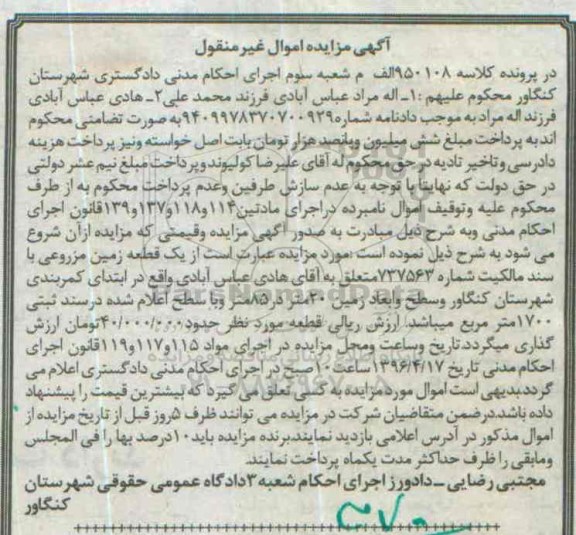 آگهی مزایده اموال غیر منقول
در پرونده کلاسه ۹۵۰۱۰۸الف م شعبه سوم اجرای احکام مدنی دادگستری شهرستان
کنگاور محکوم علیهم :۱ــ اله مراد عباس آبادی فرزند محمد علی۲ــ هادی عباس آبادی
فرزند اله مراد به موجب دادنامه شماره۹۴۰۹۹۷۸۳۷۰۷۰۰۹۲۹به صورت تضامنی محکوم
اند به پرداخت مبلغ شش میلیون وپانصد هزار تومان بابت اصل خواسته ونیز پرداخت هزینه
دادرسی وتاخیر تادیه درحق محکوم له آقای علیرضا کولیوند وپرداخت مبلغ نیم عشر دولتی
در حق دولت که نهایتا با توجه به عدم سازش طرفین وعدم پرداخت محکوم به از طرف
محکوم علیه وتوقیف اموال نامبرده دراجرای مادتین۱۱۴و۱۱۸و۱۳۷و۱۳۹قانون اجرای
احکام مدنی وبه شرح ذیل مبادرت به صدور آگهی مزایده وقیمتی که مزایده ازآن شروع
می شود به شرح ذیل نموده است :مورد مزایده عبارت است از یک قطعه زمین مزروعی با
سند مالکیت شماره ۷۳۷۵۶۳متعلق به آقای هادی عباس آبادی واقع در ابتدای کمربندی
شهرستان کنگاور وسطح وابعاد زمین ۲۰متر در۸۵متر وبا سطح اعلام شده درسند ثبتی
۱۷۰۰متر مربع میباشد. ارزش ریالی قطعه مورد نظر حدود۴۰/۰۰۰/۰۰۰تومان ارزش
گذاری میگردد.تاریخ وساعت ومحل مزایده در اجرای مواد ۱۱۵و۱۱۷و۱۱۹قانون اجرای
احکام مدنی تاریخ ۱۳۹۶/۴/۱۷ساعت ۱۰صبح در اجرای احکام مدنی دادگستری اعلام می
گردد.بدیهی است اموال موردمزایده به کسی تعلق می گیرد که بیشترین قیمت را پیشنهاد
داده باشد.درضمن متقاضیان شرکت در مزایده می توانند ظرف ۵روز قبل از تاریخ مزایده از
اموال مذکور در آدرس اعلامی بازدید نمایند.برنده مزایده باید۱۰درصد بها را فی المجلس
ومابقی را ظرف حداکثر مدت یکماه پرداخت نمایند.
مجتبی رضایی ــ دادورز اجرای احکام شعبه۳دادگاه عمومی حقوقی شهرستان
کنگاور